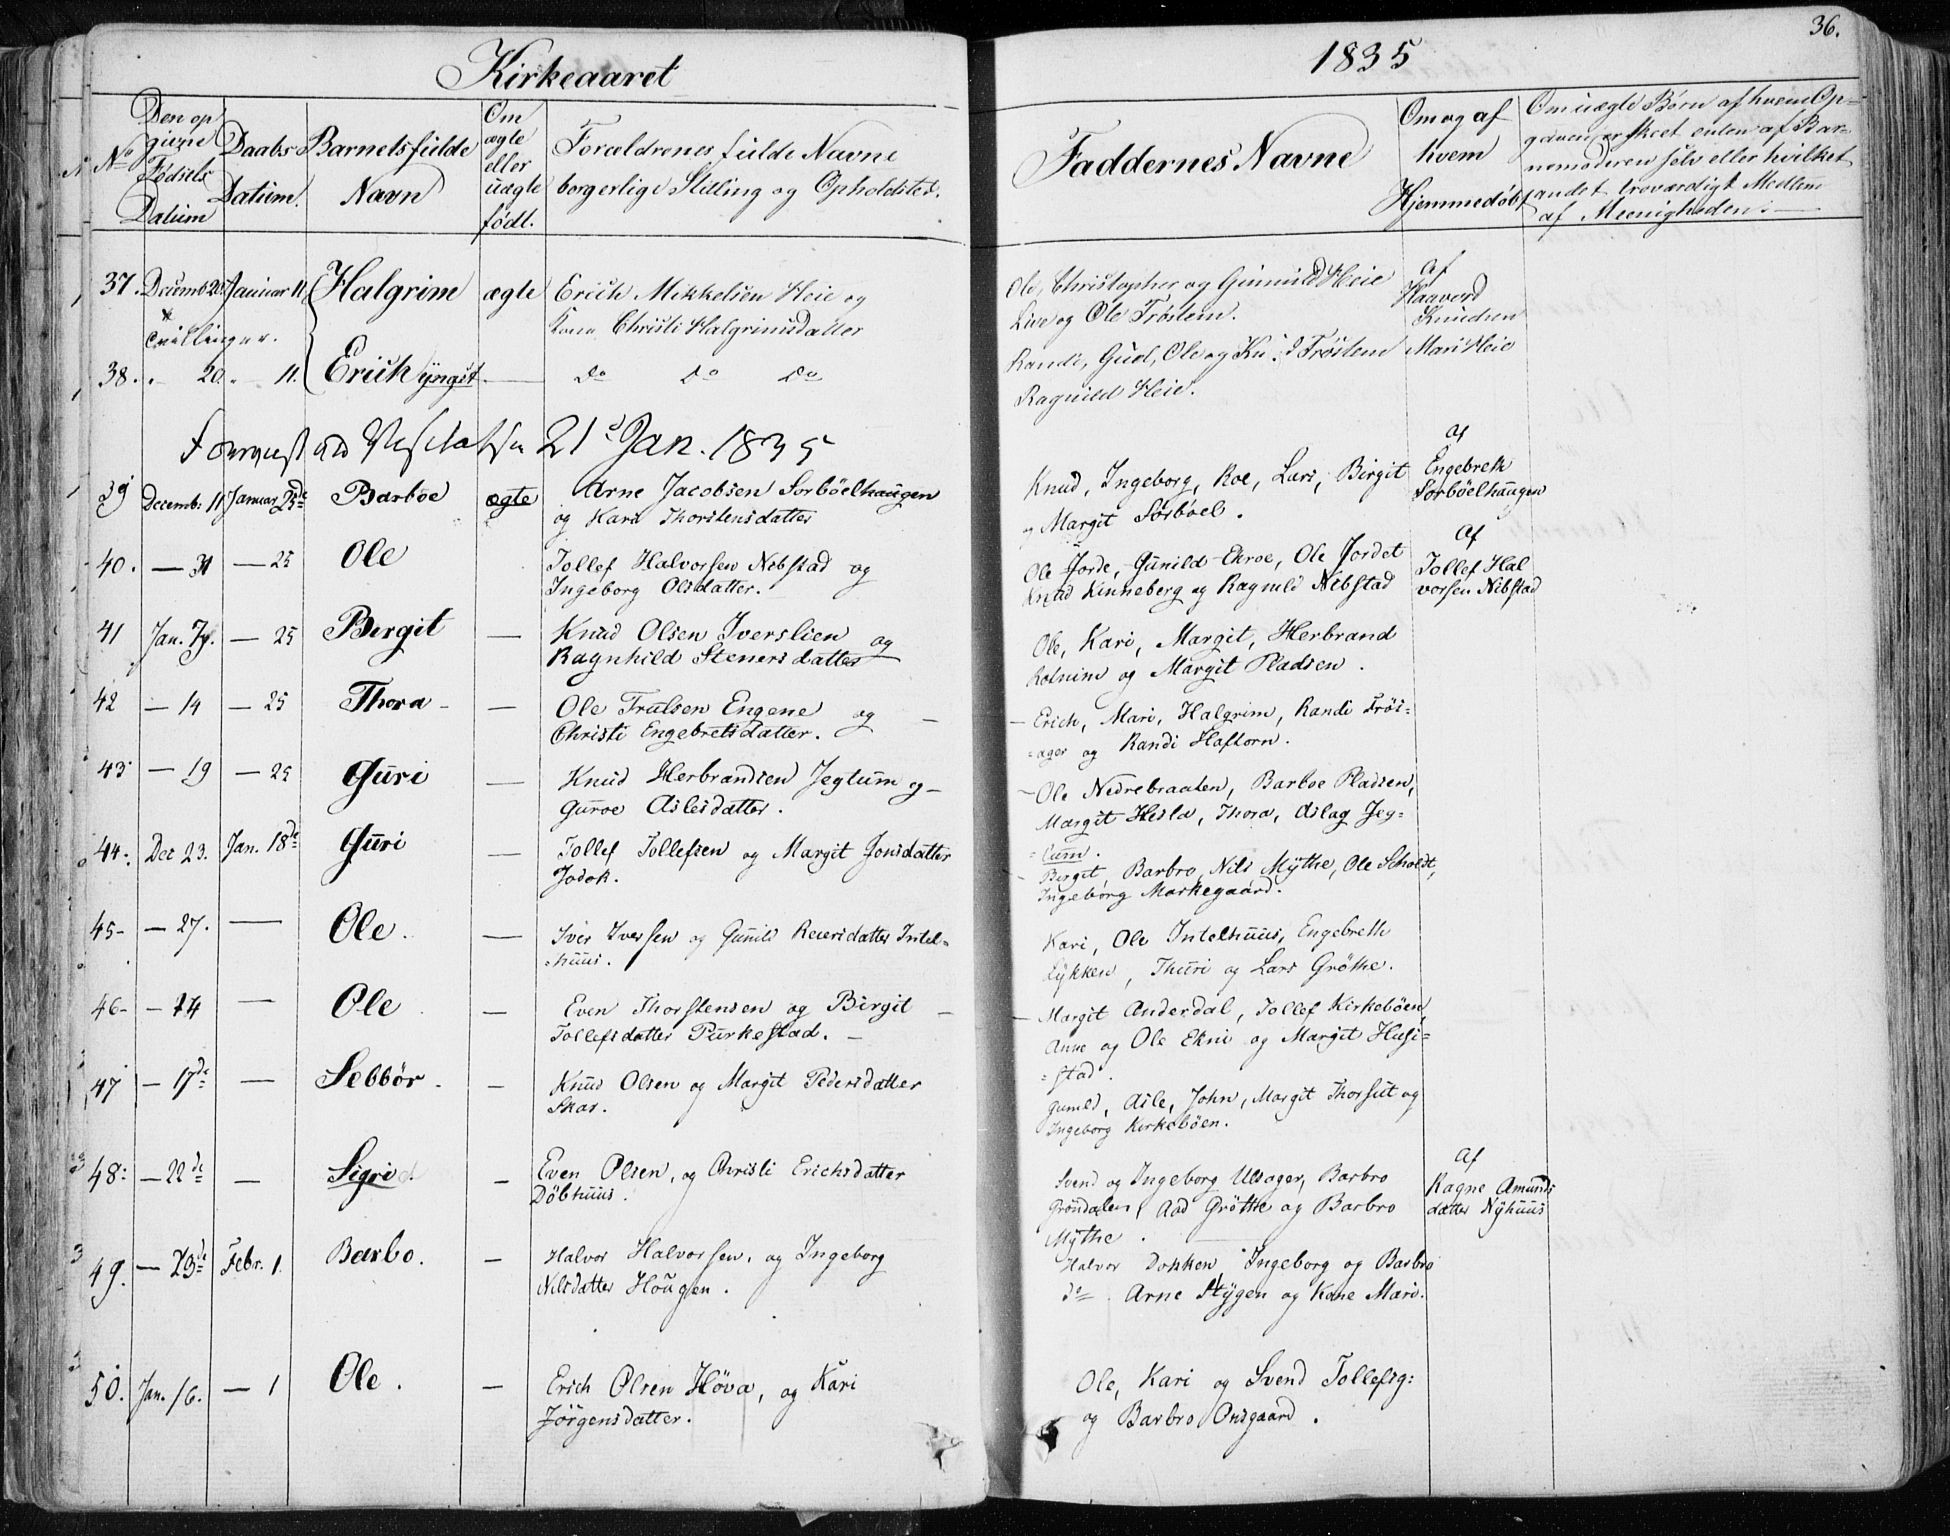 Kirkeaaret
No
Den op
givne
Fødsels
Datum
Daabs
Datum.
Barnets fulde
Navn
Om
ægte
eller
uægte
født.
Forældrenes fulde Navne
borgerlige Stilling og Opholdsted.
37. Decemb 20. Januar 11. Halgrim ægte Erich Mikkelsen Heie og
Tvillinger. Kone Christi Halgrimsdatter
38. " 20. " 11. Erich yngst. — Do Do Do
21d Jan. 1835
39 Decemb. 11 Januar 25de Barboe ægte Arne Jacobsen Sorböelhaugen
og Kari Thorstensdatter
40. — 31 — 25 Ole Tollef Halvorsen Nibstad og
Ingeborg Olsdatter.
41 Jan. 7. — 25 Bergit — Knud Olsen Iverslien og
Ragnhild Stenersdatter
42 — 14 — 25 Thora — — Ole Trulsen Engene og —
Christi Engebretsdatter.
43 — 19 — 25 Guri — Knud Herbrandsen Jegtum og —
Guroe Aslesdatter.
44. Dec 23. Jan. 18de Guri — Tollef Tollefsen og Margit Jonsdatter
Jodok.
45 — 27. — Ole. — Iver Iversen og Gunild Reiersdatter Intel=
=huus.
46 — 14 — Ole — Even Thorstensen og Birgit —
Tollefsdatter Purkestad. —
47 — 17de — Sebbör — Knud Olsen og Margit Pedersdatter
Skar.
48: — 22de — Sigrid — Even Olsen, og Christi Erichsdatter
Döbhuus.
49. — 23de Febr. 1. Barbo. — Halvor Halvorsen, og Ingeborg
Nilsdatter Hougen.
50. Jan. 16. — 1 Ole. — Erich Olsen Höva, og Kari
Jörgensdatter.
36.
1835
Faddernes Navne
Om og af
hvem
Hjemmedöbt
Om uægte Börn af hvem Op=
gaven er skeet enten af Bar=
nemoderen selv eller hvilket
andet troværdigt Medlem
af Meenigheden. —
Ole, Christopher og Gunnild Heie
Live og Ole Fröstem.
Af
Haavord
Knudsen
Randi, Gud, Ole og Kn d Fröstem Mari Heie
Ragnild Heie.
Knud, Ingeborg, Roe, Lars, Birgit
og Margit Sorböel.
Af
Engebreth
Sorböelhaugen
Ole Jorde, Gunild Ekroe, Ole Jordet
Knud Kinneberg og Ragnild Nibstad
Af
Tollef Hal
vorsen Nibstad
Ole, Kari, Margit, Herbrand
Rotnim og Margit Pladsen.
— Erich, Mari, Halgrim, Randi Fröi=
=ager og Randi Haftorn.
— Ole Nedrebraaten, Barboe Pladsen,
Margit Hesla, Thora, Aslag Jeg=
=tum.
Birgit, Barbro, Nils Mÿthe, Ole Scholdt,
Ingeborg Markegaard.
Kari, Ole Intelhuus, Engebreth
Lykken, Thuri og Lars Gröthe.
— Margit Andersdal, Tollef Kirkeböen,
Anne og Ole Ekni og Margit Husi=
=stad.
Gunild, Asle, John, Margit Thorset og
Ingeborg Kirkeböen.
Svend og Ingeborg Ulsager, Barbro
Gröndalen, Aad Gröthe og Barbro
Mÿthe.
Af
Ragne Amunds
datter Nÿhuus
Halvor Dokken Ingeborg og Barbro
do Arne Stÿgen og Kone Mari.
Ole, Kari og Svend Tollefsg:
og Barbro Onsgaard.